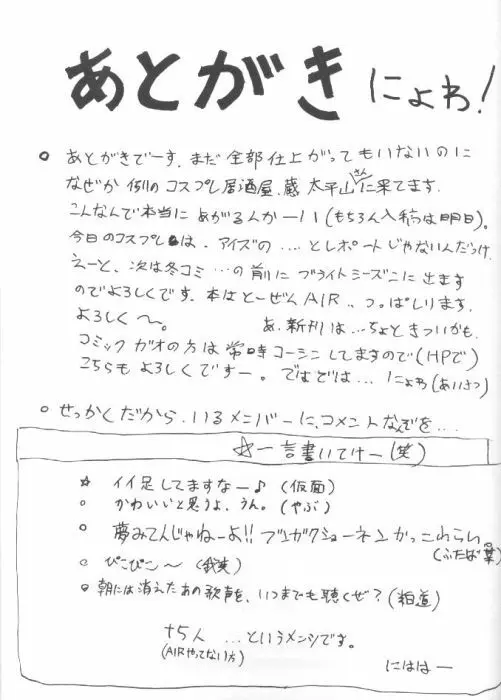 あとがき にょわ!
○ あとがきでーす。まだ全部仕上がってもいないのに
なぜか例のコスプレ居酒屋、蔵 太平山さんに来てます。
こんなんで本当にあがるんかーい(もちろん入稿は明日)。
今日のコスプレは、アイズの … とレポートじゃないんだっけ
えーと、次は冬コミ …の前にブライトシーズンに出ます
のでよろしくです。本はとーぜんAIR。つっぱしります。
よろしく〜。 あ、新刊は…ちょときついかも。
コミックガオの方は常時コーシンしてますので(HPで)
こちらもよろしくですー。ではでは… にょわ(あいさつ)
○ せっかくだから、いるメンバーに、コメントなんぞを…
☆一言書いてけー(笑)
☆ イイ足してますなー♪(仮面)
○ かわいいと思うよ、うん。(やぶ)
○ 夢みてんじゃねーよ!!ブンガクショーネンかっこわらい
(ふたば 葉)
○ ぴこぴこ〜
○ 朝には消えたあの歌声を、いつまでも聴くぜ?
+5人 …というメンツです。
(AIRやってない方)
にははー